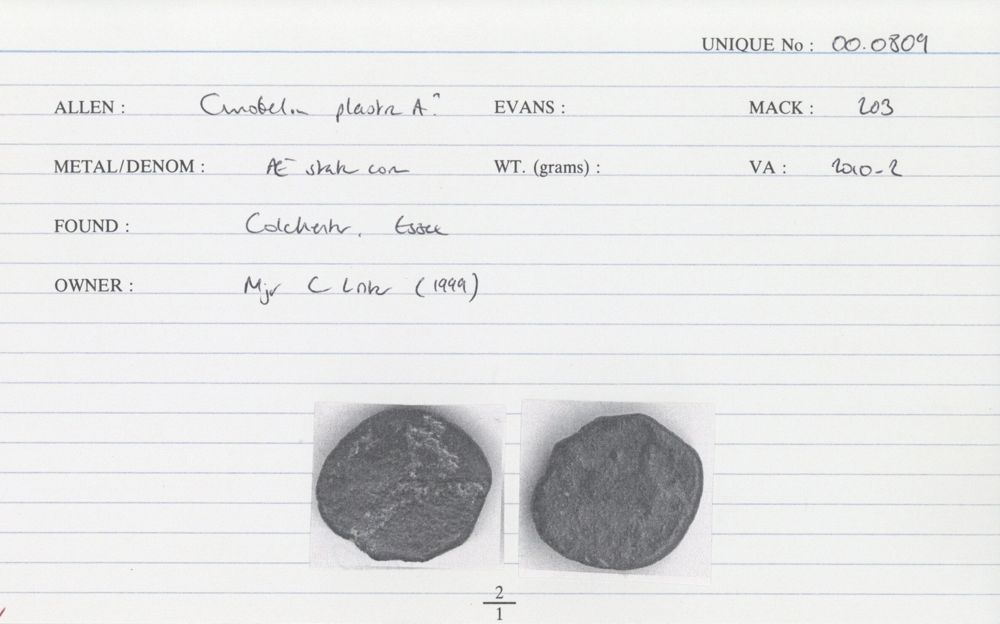 UNIQUE No : 00.0809
ALLEN : Cunobelin plastr A? EVANS : MACK : 203
METAL/DENOM : Æ stater core WT. (grams) : VA : 2010-2
FOUND : Colchester, Essex
OWNER : Mjr C (1999)
2
1